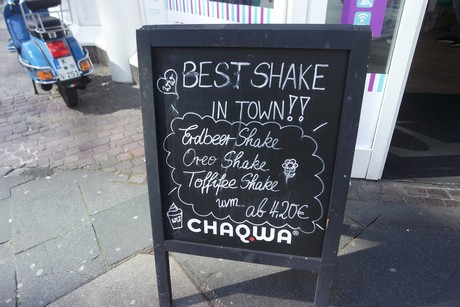 BEST SHAKE
IN TOWN!!
Erdbeer Shake
Oreo Shake
Toffifee Shake
uvm... ab 4,20€
CHAQWA